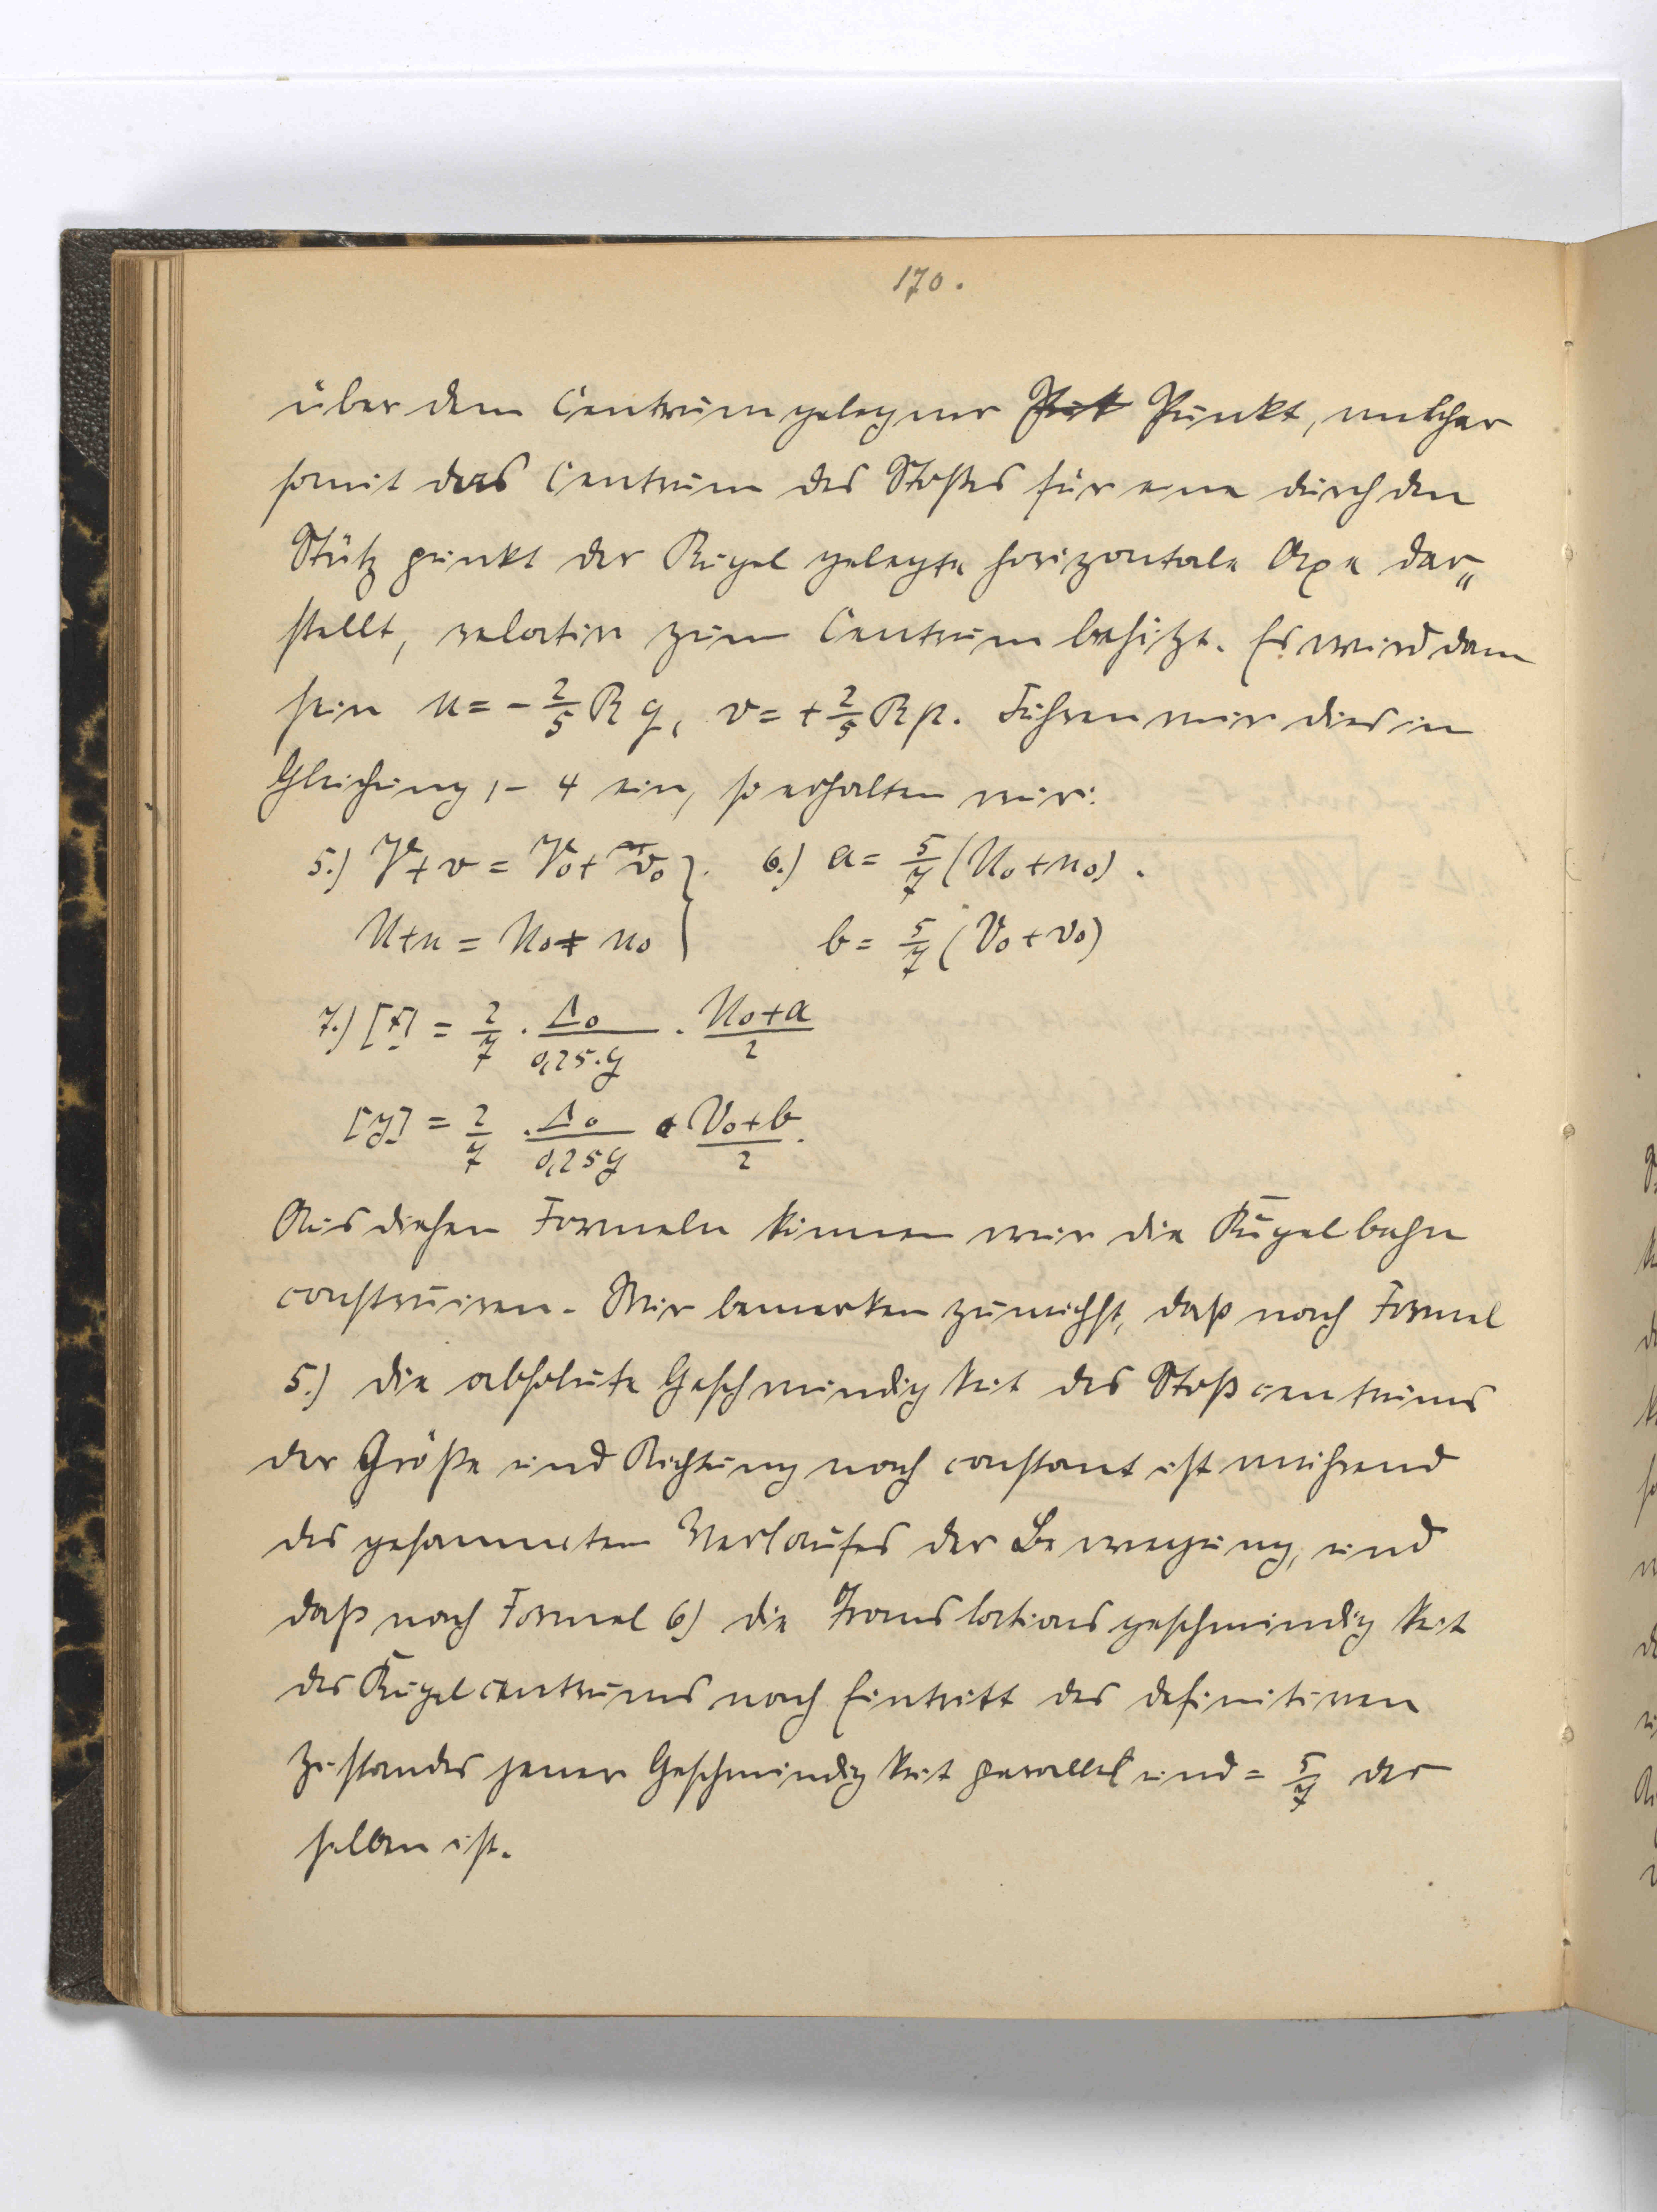 170.
über dem Centrum gelegener Punkt, welcher
somit das Centrum des Stoßes für eine durch den
Stützpunkt der Kugel gelegte horizontale Axe dar„
stellt, relativ zum Centrum besitzt. Es wird dann
sein u = - 2/5 R q, v = + 2/5 R p. Führen wir dies in
Gleichung 1 – 4 ein, so erhalten wir:
5.) V + v = V₀ + v₀ }. 6.) a = 5/7 (U₀ + u₀).
U + u = U₀ + u₀ } b = 5/7 (V₀ + v₀)
7.) [x] = 2/7 · Δ₀/0,25·g · U₀+a/2
[y] = 2/7 · Δ₀/0,25g · V₀+b/2.
Aus diesen Formeln können wir die Kugelbahn
construiren. Wir bemerken zunächst, daß nach Formel
5.) die absolute Geschwindigkeit des Stoßcentrums
der Größe und Richtung nach constant ist während
des gesammten Verlaufes der Bewegung, und
daß nach Formel 6) die Translationsgeschwindigkeit
des Kugelcentrums nach Eintritt des definitiven
Zustandes jener Geschwindigkeit parallel und = 5/7 der
selben ist.